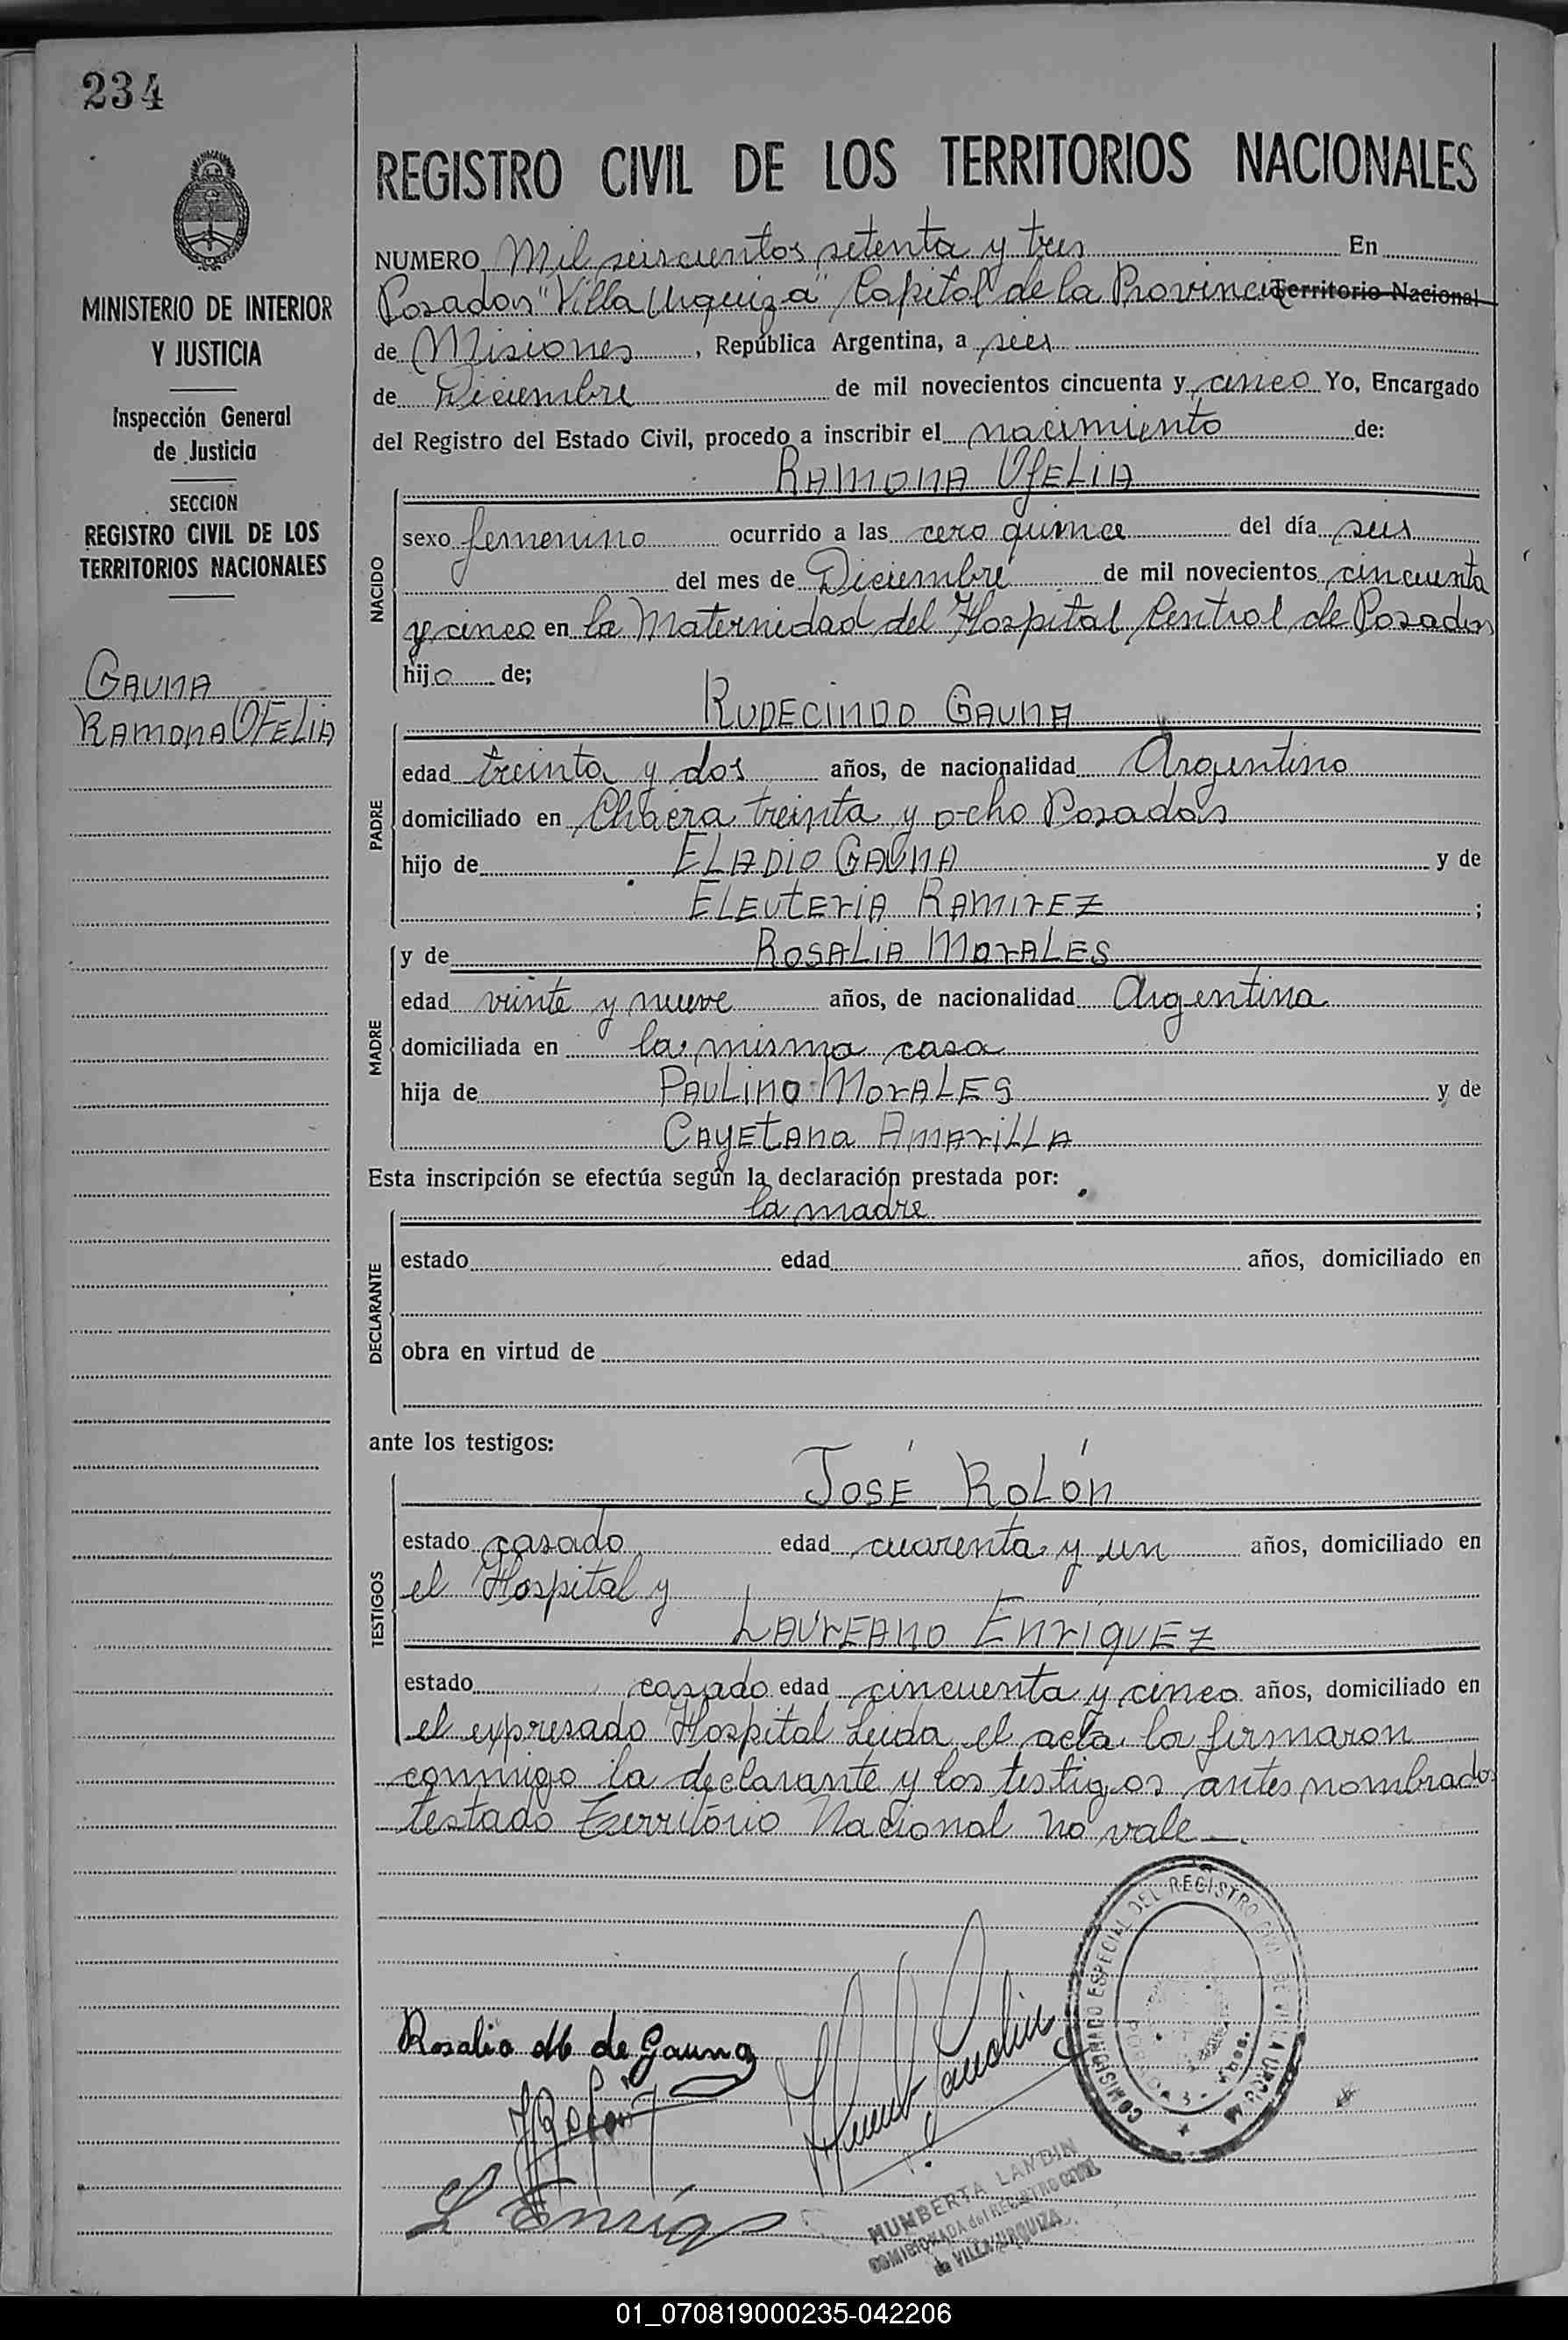 234
MINISTERIO DE INTERIOR
Y JUSTICIA
Inspección General
de Justicia
SECCION
REGISTRO CIVIL DE LOS
TERRITORIOS NACIONALES
GAUNA
RAMONA OFELIA
REGISTRO CIVIL DE LOS TERRITORIOS NACIONALES
NUMERO Mil seiscientos setenta y tres En
Posadas "Villa Urquiza" Capital de la Provincia Territorio Nacional
de Misiones, República Argentina, a seis
de Diciembre de mil novecientos cincuenta y cinco Yo, Encargado
del Registro del Estado Civil, procedo a inscribir el nacimiento de:
RAMONA OfELIA
NACIDO
sexo femenino ocurrido a las cero quince del día seis
del mes de Diciembre de mil novecientos cincuenta
y cinco en la Maternidad del Hospital Central de Posadas
hijo de;
RUDECINDO GAUNA
PADRE
edad treinta y dos años, de nacionalidad Argentino
domiciliado en Chacra treinta y ocho Posadas
hijo de ELADIO GAUNA y de
ELEUtEriA RAMIrEZ ;
y de ROSALIA MOrALES
MADRE
edad veinte y nueve años, de nacionalidad Argentina
domiciliada en la misma casa
hija de PAULINO MOrALES y de
CAyEtANa AMAriLLA
Esta inscripción se efectúa según la declaración prestada por:
la madre
DECLARANTE
estado edad años, domiciliado en
obra en virtud de
ante los testigos:
JOSÉ ROLÓN
TESTIGOS
estado casado edad cuarenta y un años, domiciliado en
el Hospital y
LAUrEANO ENrIqUEZ
estado casado edad cincuenta y cinco años, domiciliado en
el expresado Hospital Leida el acta la firmaron
conmigo la declarante y los testigos antes nombrados
testado Territorio Nacional no vale
COMISIONADO ESPECIAL DEL REGISTRO CIVIL DE VILLA URQUIZA
Rosalia M de Gauna
L Enríq
HUMBERTA LANDIN
COMISIONADA del REGISTRO CIVIL
de VILLA URQUIZA
01_070819000235-042206